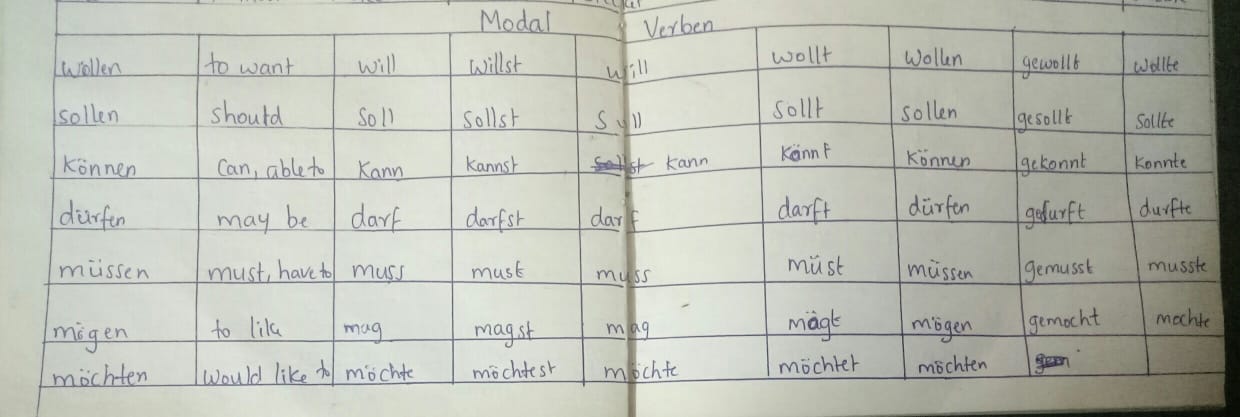 Modal Verben
wollen to want will willst will wollt wollen gewollt wollte
sollen should soll sollst soll sollt sollen gesollt sollte
können can, able to kann kannst kann könnt können gekonnt konnte
dürfen may be darf darfst darf darft dürfen gefurft durfte
müssen must, have to muss must muss müst müssen gemusst musste
mögen to like mag magst mag mägt mögen gemocht mochte
möchten would like to möchte möchtest möchte möchtet möchten